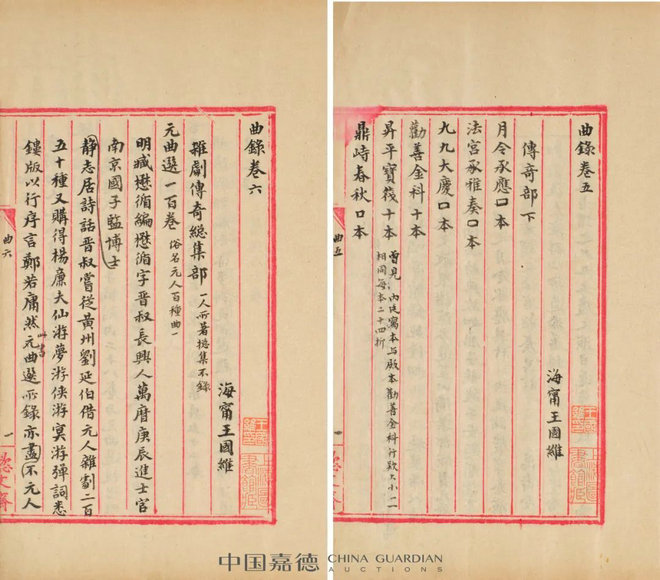 曲錄卷五
海甯王國維
傳奇部下
月令承應口本
法宮承雅奏口本
九九大慶口本
勸善金科十本
昇平寶筏十本
曾見內廷寫本与殿本勸善金科行款大小一一
相同每本二十四折
鼎峙春秋口本
曲五
一
曲錄卷六
海甯王國維
雜劇傳奇總集部
一人所著總集不錄
元曲選一百卷
俗名元人百種曲一
明臧懋循編懋循字晉叔長興人萬曆庚辰進士官
南京國子監博士
靜志居詩話晉叔嘗從黃州劉延伯借元人雜劇二百
五十種又購得楊廉夫仙游夢游俠游冥游彈詞悉
鏤版以行序言鄭若庸然元曲選所錄亦盡不元人
曲六
一
中国嘉德 CHINA GUARDIAN
AUCTIONS